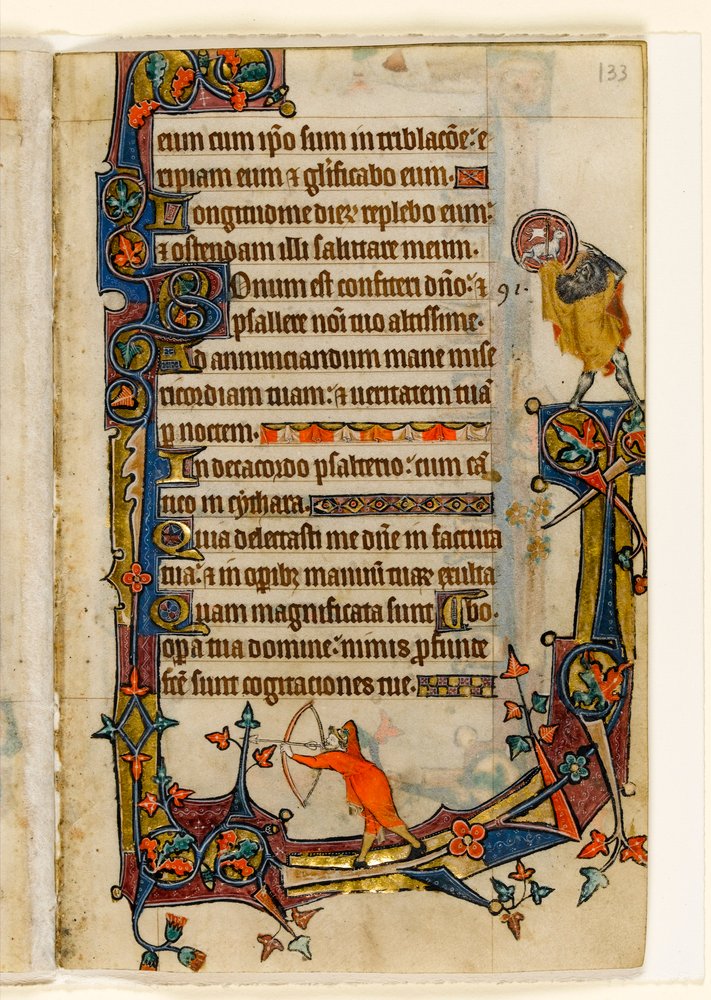 133
eum cum ip̄o sum in tribulac̄oe: e
ripiam eum ⁊ gl̓ificabo eum.
Longitudine dieꝝ replebo eum:
⁊ ostendam illi salutare meum.
Bonum est confiteri dn̄o: ⁊
91.
psallere noī tuo altissime.
Ad annunciandum mane mise
ricordiam tuam: ⁊ ueritatem tuā
p̱ noctem.
In decacordo psalterio: cum cā
tico in cythara.
Quia delectasti me dn̄e in factura
tua: ⁊ in op̱ibꝫ manuū tuaꝝ exulta
Quam magnificata sunt bo.
op̱a tua domine: nimis ꝓfunde
fc̄e sunt cogitaciones tue.